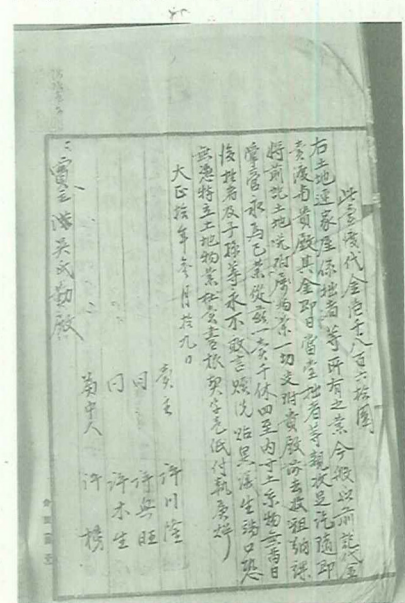 此賣渡代金壱千八百六拾圓
右土地連家屋係拙者等所有之業今般以前記代金
賣渡與貴殿其金即日當堂拙者等親收足訖隨即
將前記土地洗附厝為業一切交附貴殿前去收租納課
掌管永為己業從茲一賣千休四至內寸土系物亦不留日
後拙者及子孫等永不敢言贖洗貼異滋生端口恐
無憑特立土地物業杜賣盡根契字壱紙付執為炤
大正拾年參月拾九日
賣主 許川隆
同 許興旺
同 許木生
為中人 許榜
買主 洪吳氏勤殿